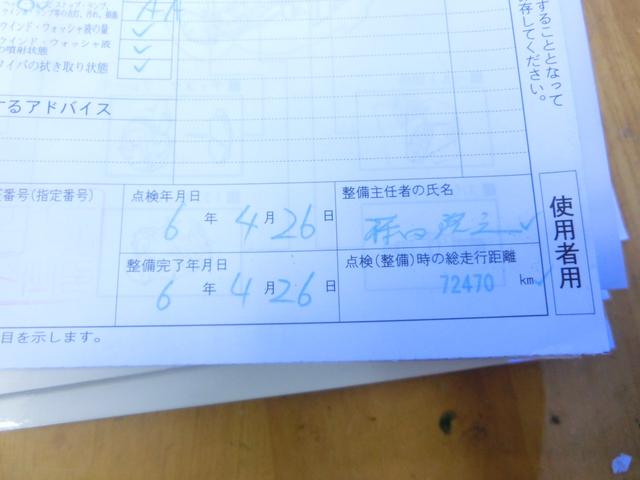 ウインド・ウォッシャ液の量
ウインド・ウォッシャ液
の噴射状態
ワイパの拭き取り状態
するアドバイス
することとなって
存してください。
番号(指定番号)
点検年月日
6 年 4 月 26 日
整備主任者の氏名
整備完了年月日
6 年 4 月 26 日
点検(整備)時の総走行距離
72470 km
使用者用
目を示します。